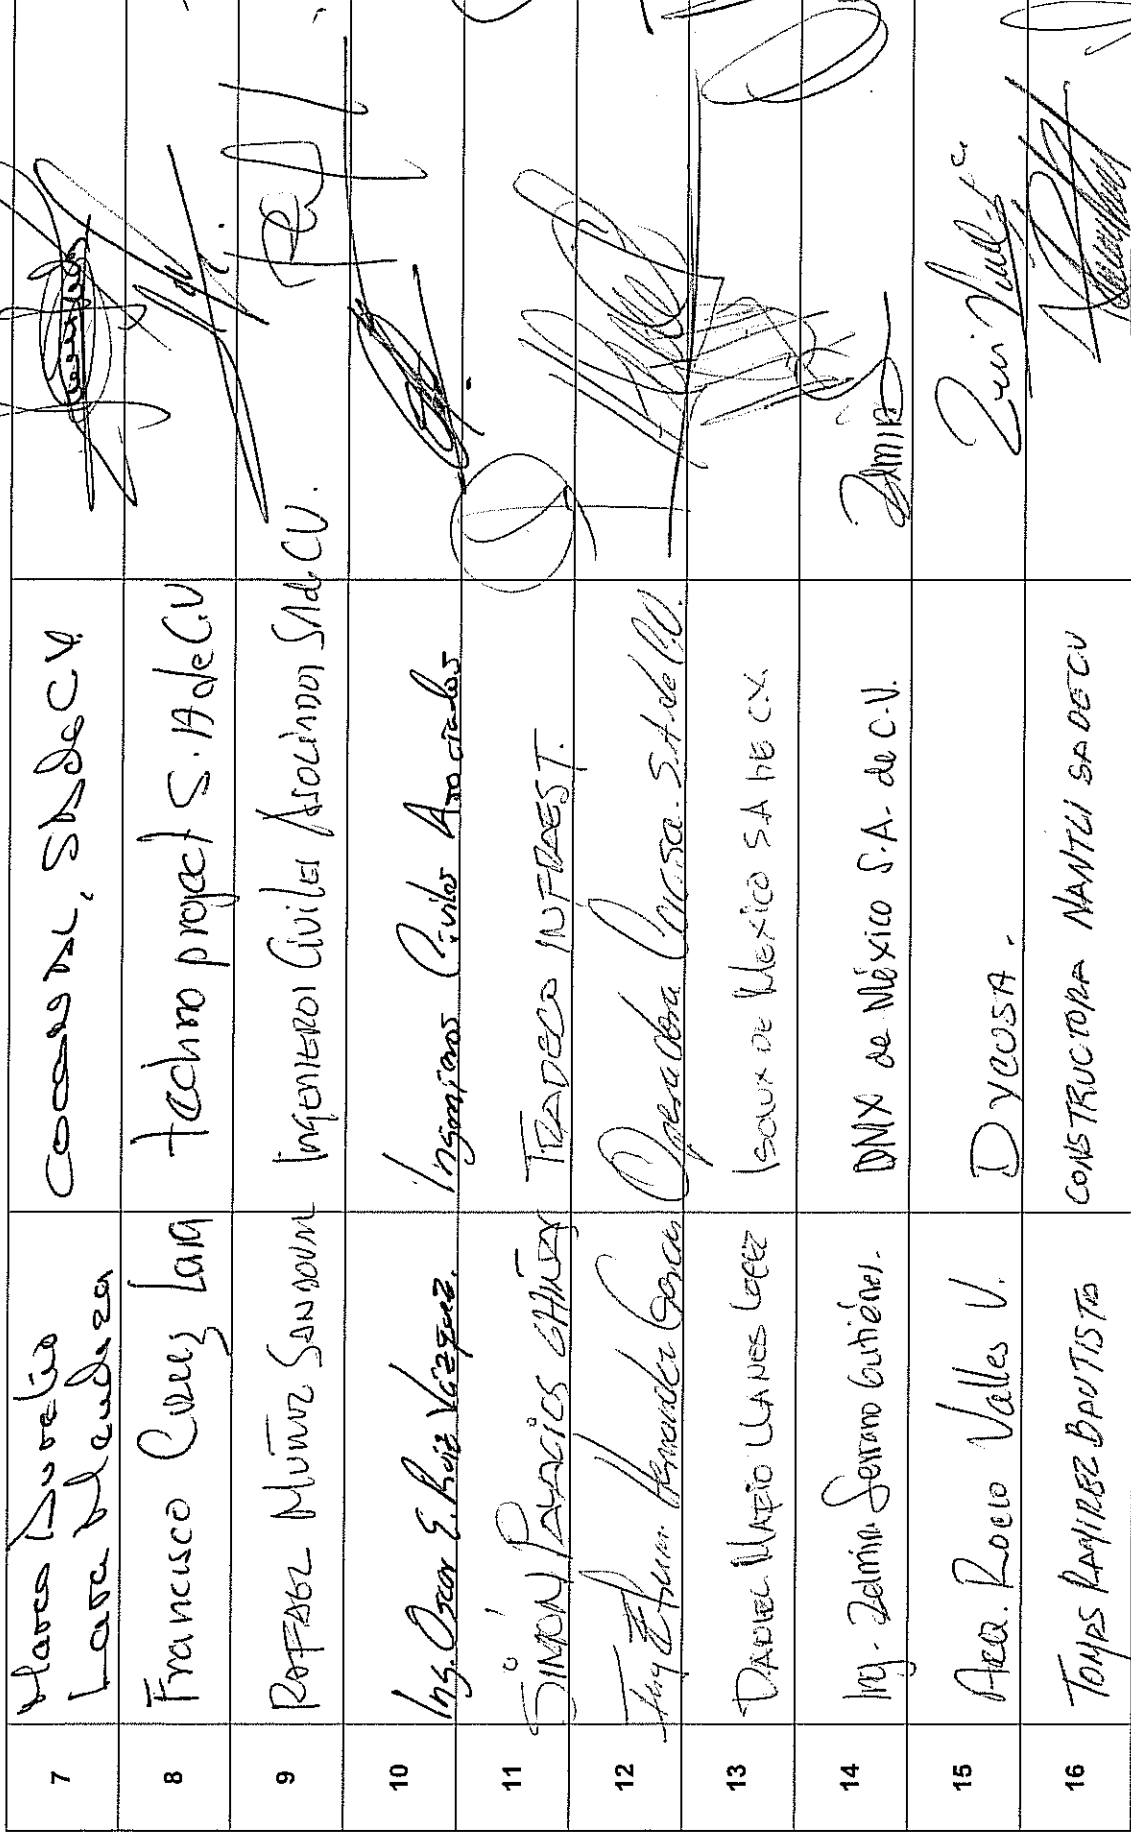 7 Marco Aurelio Lara Mendoza COCONAL, SA de CV.
8 Francisco Cruz Lara technoproject S.A de C.V
9 RAFAEL MUÑOZ SANDOVAL INGENIEROS CIVILES ASOCIADOS SA de CV.
10 Ing. Oscar E. Ruiz Vázquez. Ingenieros Civiles Asociados
11 SIMON PALACIOS TRADECO INFRAEST.
12 Ing Hernández García Operadora S.A. de C.V.
13 DANIEL MARIO LLANES LOPEZ ISOLUX DE MEXICO SA DE C.V.
14 Ing. Zelmira Serrano Gutiérrez. DMX de México S.A. de C.V.
15 ARQ. Rocio Valles V. DYCUSA.
16 TOMAS RAMIREZ BAUTISTA CONSTRUCTORA NANTLI SA DE CV